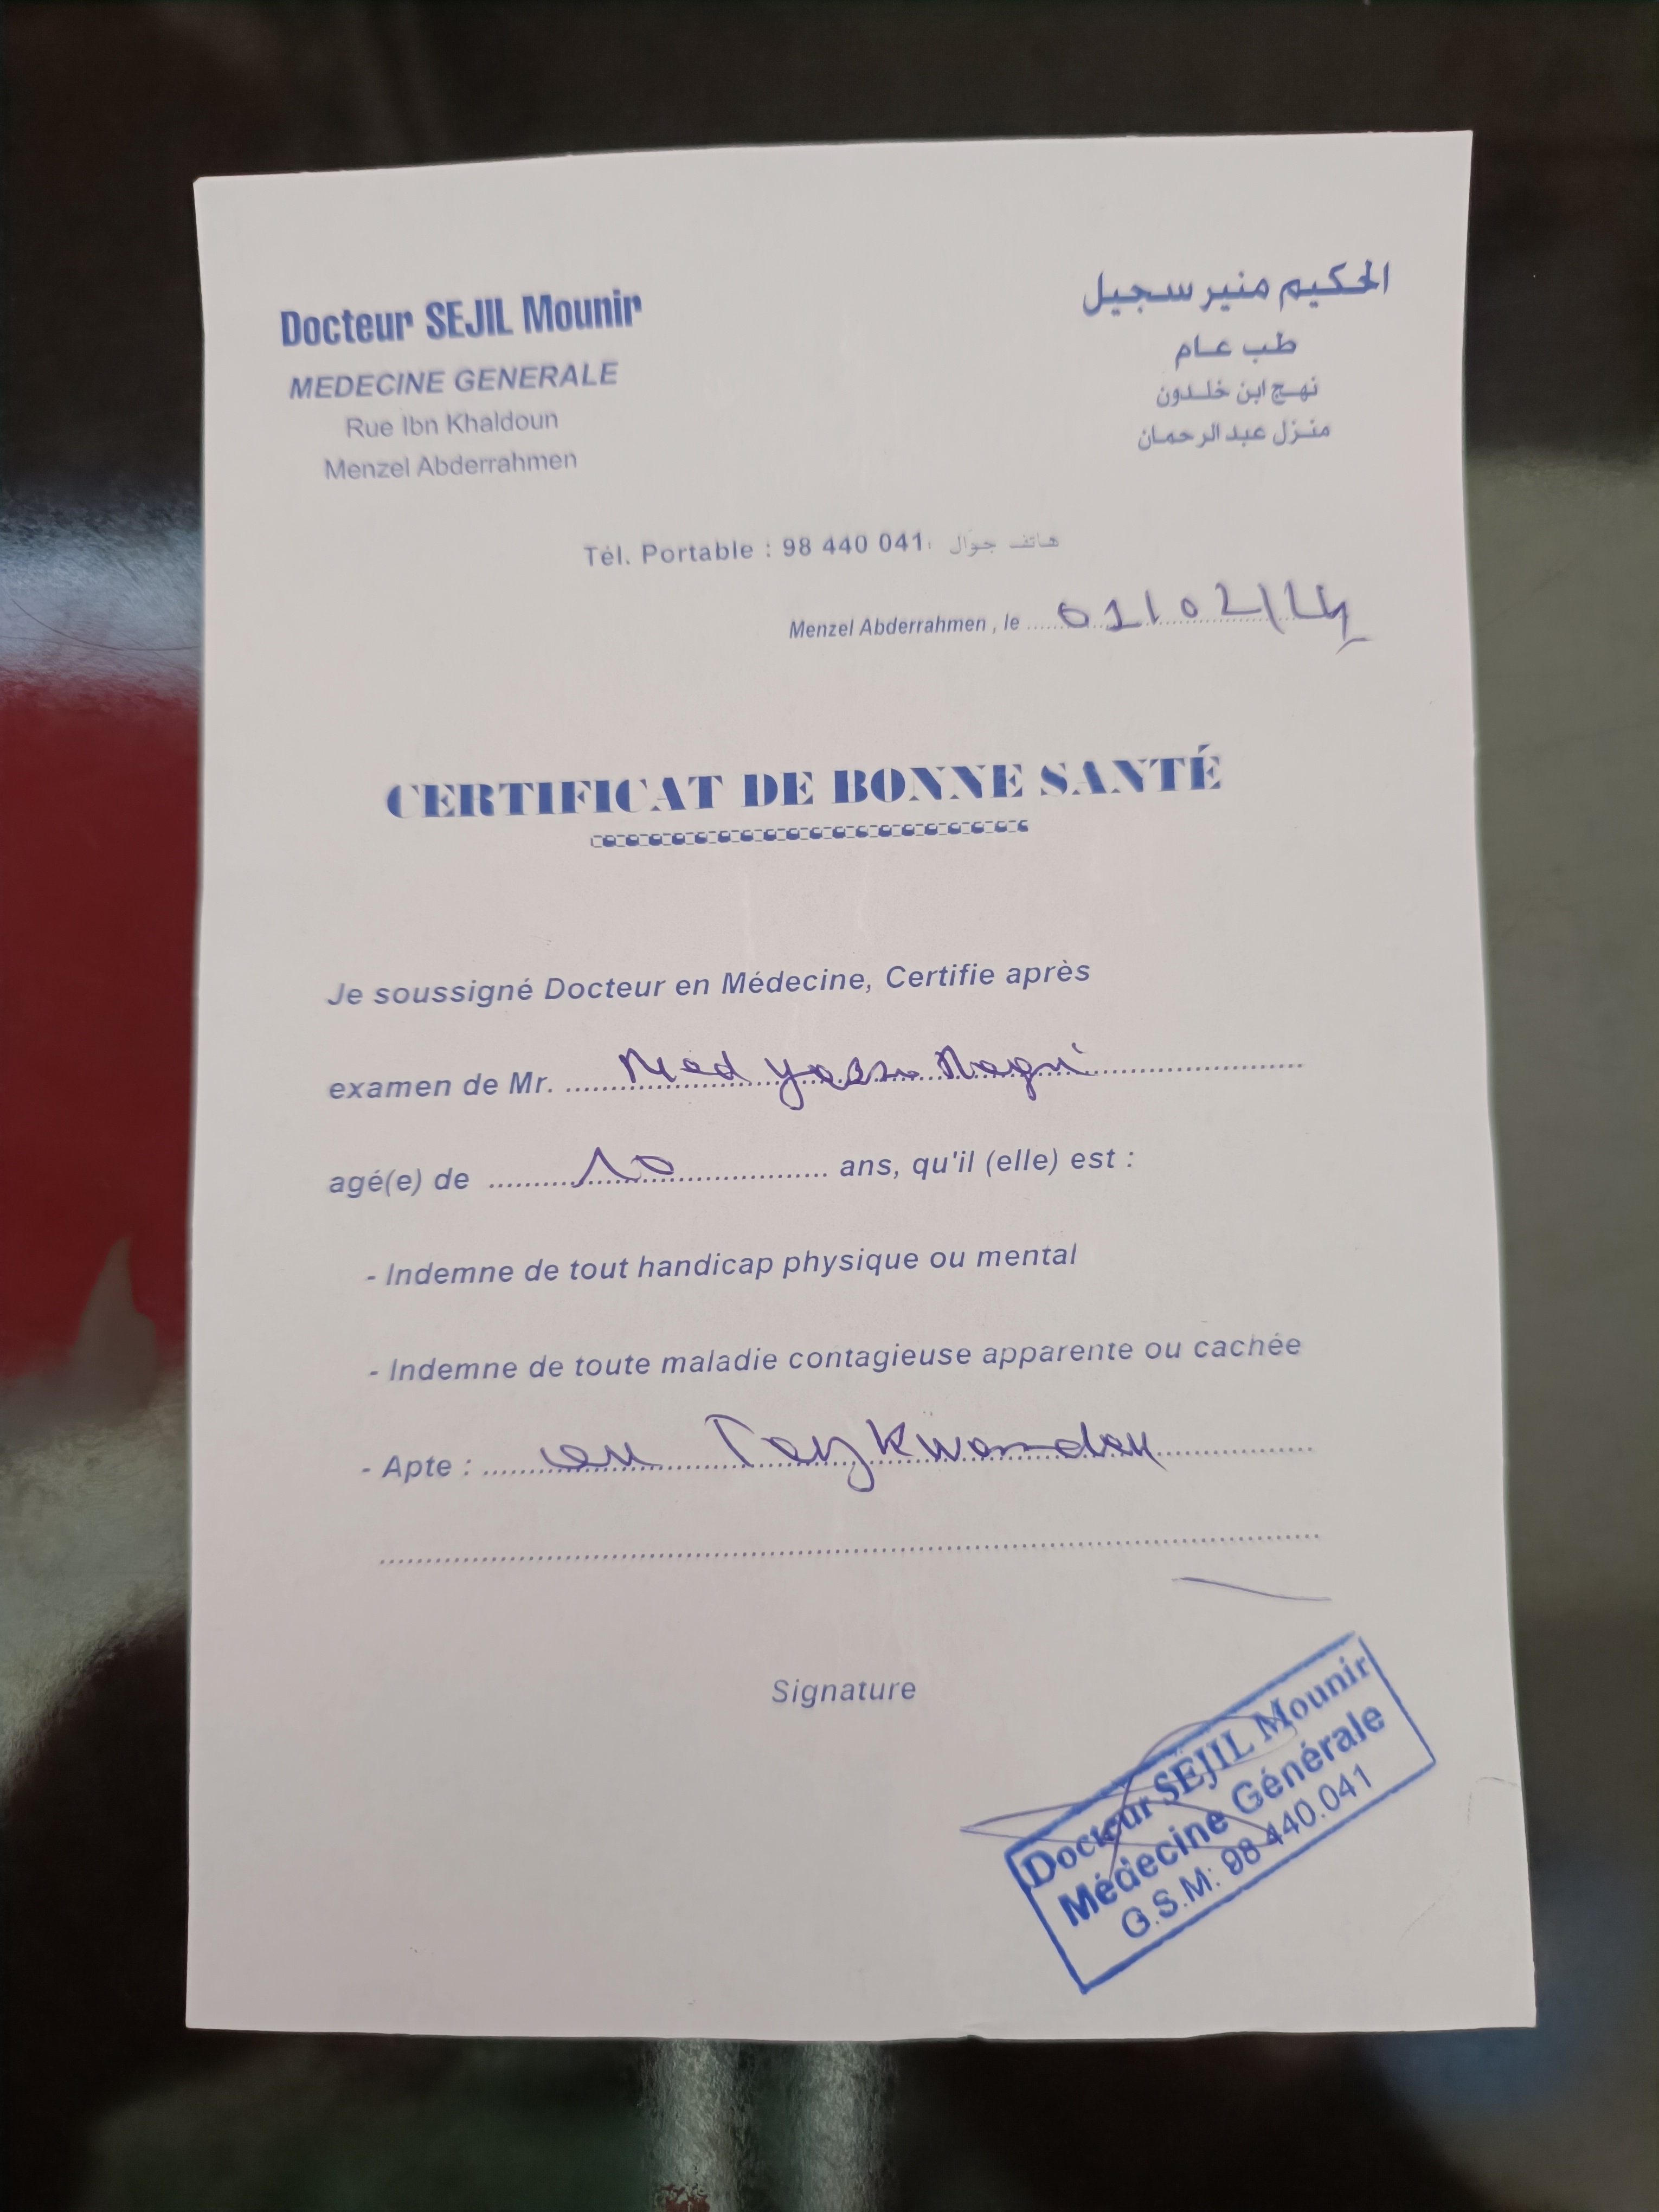 Docteur SEJIL Mounir
MEDECINE GENERALE
Rue Ibn Khaldoun
Menzel Abderrahmen
الحكيم منير سجيل
طب عام
نهج ابن خلدون
منزل عبد الرحمان
Tél. Portable : 98 440 041 : هاتف جوال
Menzel Abderrahmen , le 01/02/24
CERTIFICAT DE BONNE SANTÉ
Je soussigné Docteur en Médecine, Certifie après
examen de Mr. Med
agé(e) de 10 ans, qu'il (elle) est :
- Indemne de tout handicap physique ou mental
- Indemne de toute maladie contagieuse apparente ou cachée
- Apte : au
Signature
Docteur SEJIL Mounir
Médecine Générale
G.S.M: 98 440.041